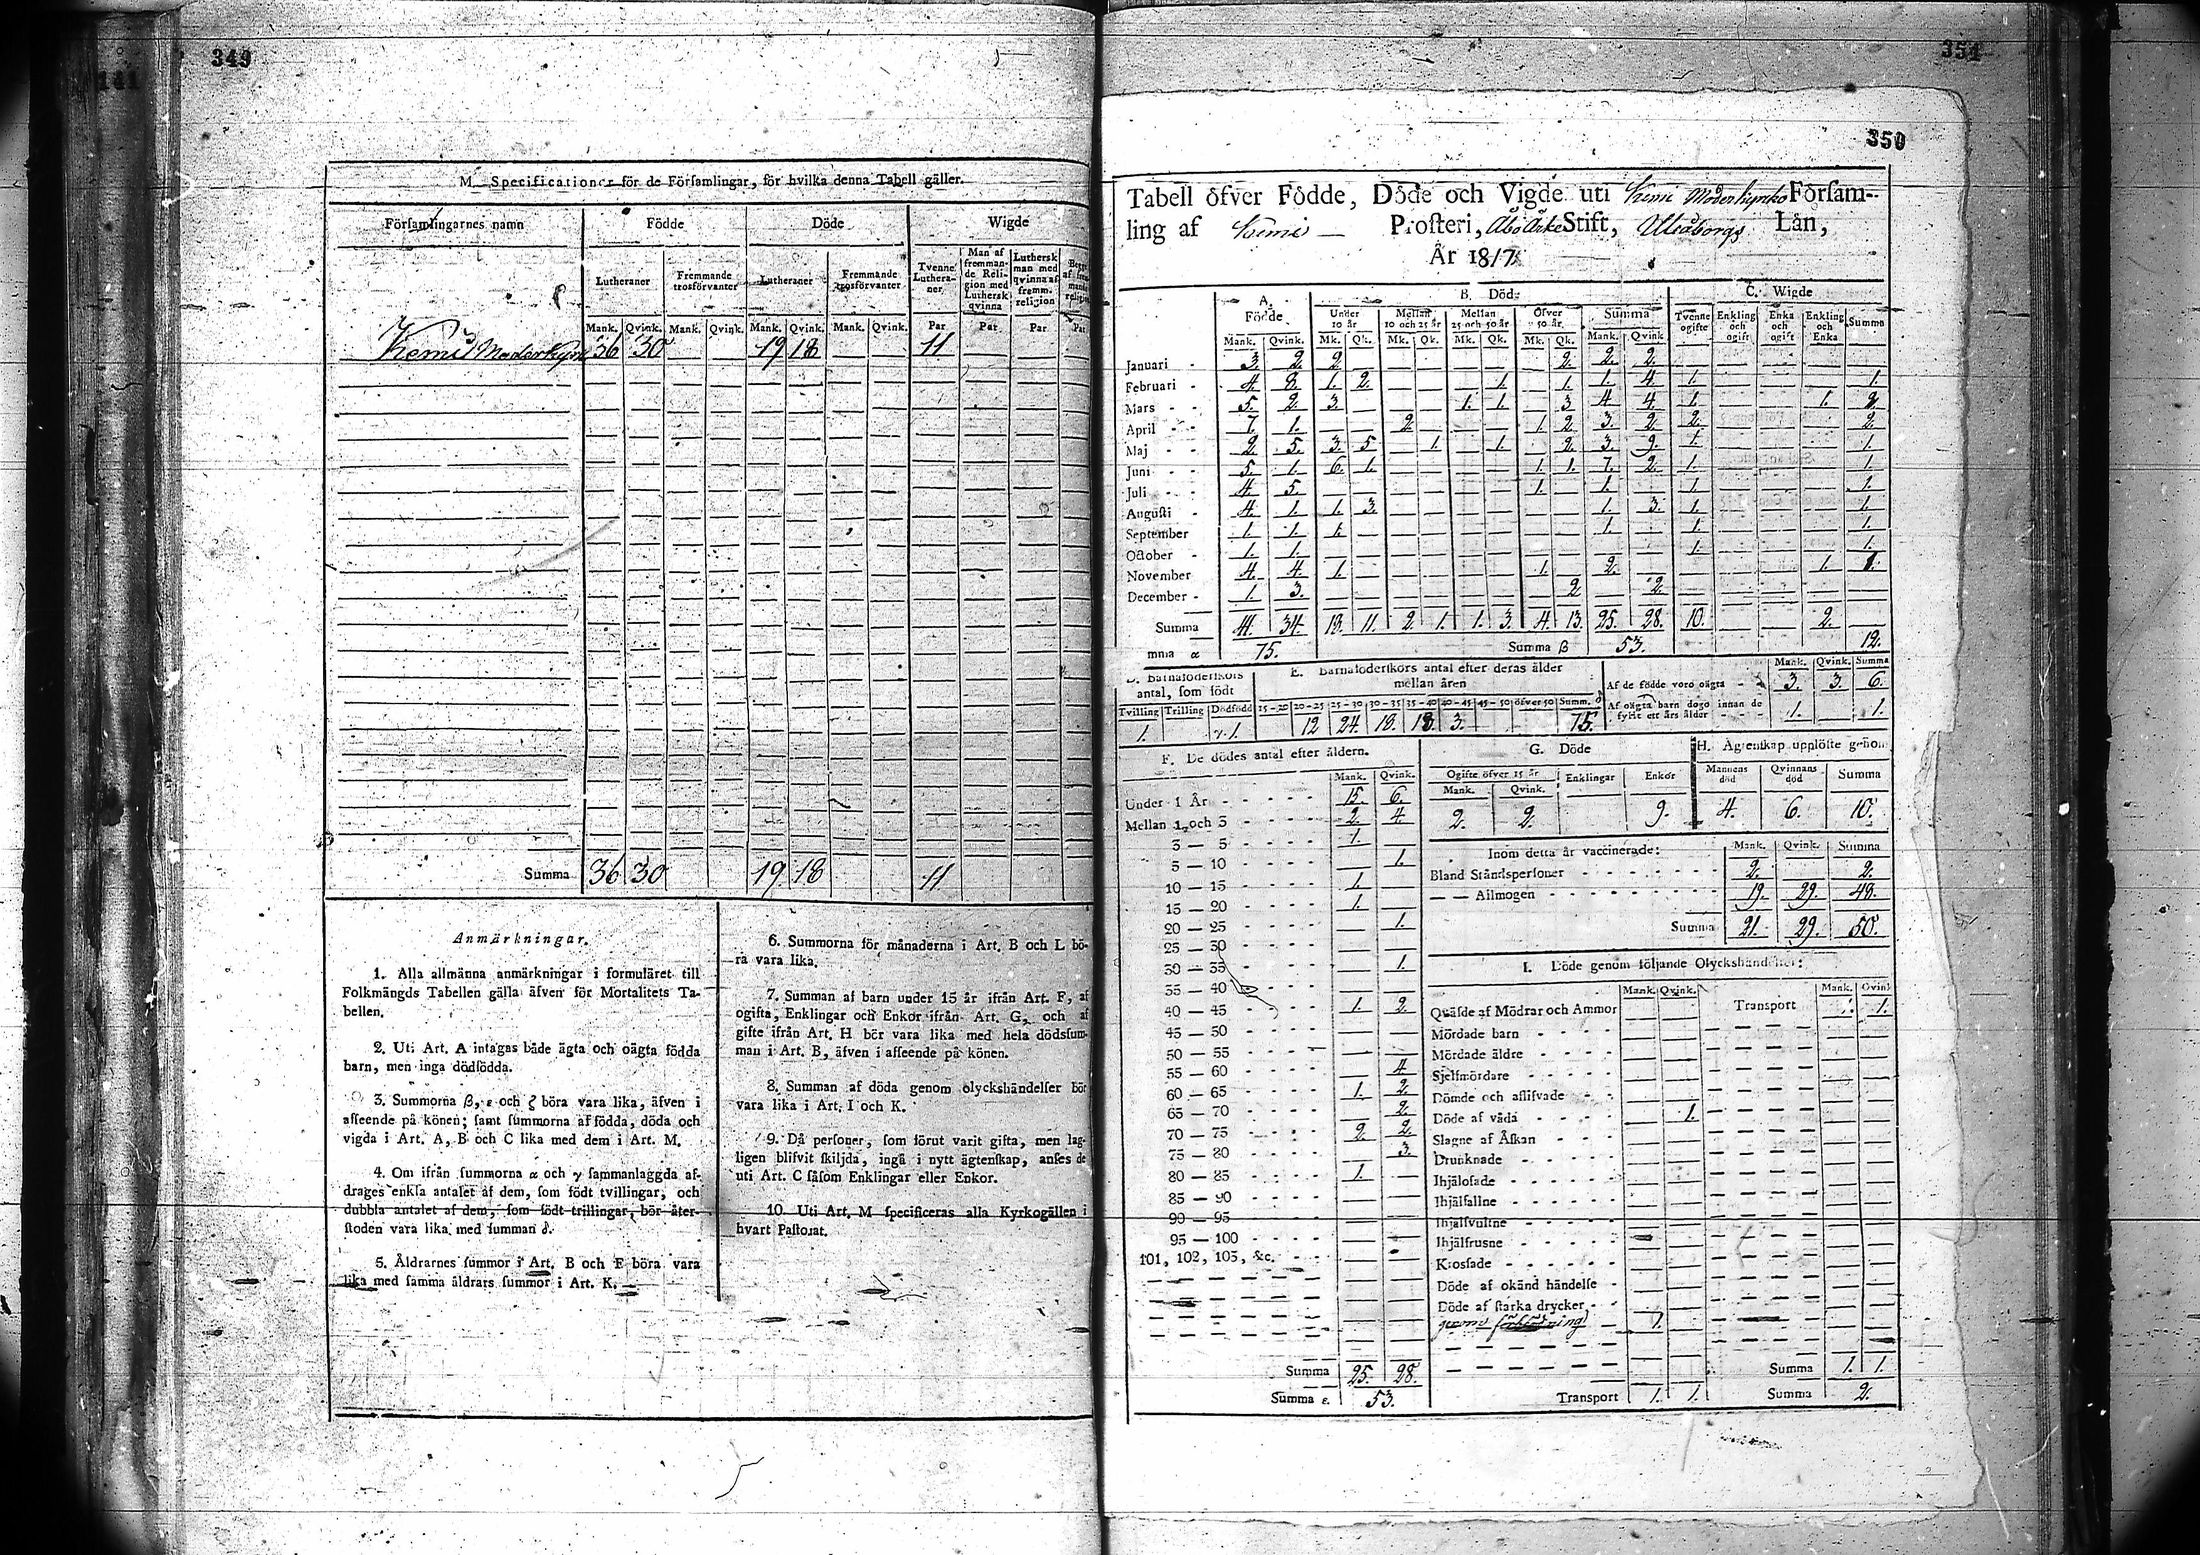 349
141
M. Specificationer för de Församlingar, för hvilka denna Tabell gäller.
Församlingarnes namn Födde Döde Wigde
Lutheraner Fremmande trosförvanter Lutheraner Fremmande trosförvanter Tvenne Lutheraner Man af fremmande Religion med Luthersk qvinna Luthersk man med qvinna af fremm. religion
Mank. Qvink. Mank. Qvink. Mank. Qvink. Mank. Qvink. Par Par Par Par
Kemi Moderkyrk 36 30 19 18 11
Summa 36 30 19 18 11
Anmärkningar.
1. Alla allmänna anmärkningar i formuläret till
Folkmängds Tabellen gälla äfven för Mortalitets Ta-
bellen.
2. Uti Art. A intagas både ägta och oägta födda
barn, men inga dödfödda.
3. Summorna β, ε och ζ böra vara lika, äfven i
afseende på könen; samt summorna af födda, döda och
vigda i Art. A, B och C lika med dem i Art. M.
4. Om ifrån summorna α och γ sammanlaggda af-
drages enkla antalet af dem, som födt tvillingar, och
dubbla antalet af dem, som födt trillingar, bör åter-
stoden vara lika med summan δ.
5. Åldrarnes summor i Art. B och F böra vara
lika med samma åldrars summor i Art. K.
6. Summorna för månaderna i Art. B och L bö-
ra vara lika.
7. Summan af barn under 15 år ifrån Art. F, af
ogifta, Enklingar och Enkor ifrån Art. G, och af
gifte ifrån Art. H bör vara lika med hela dödssum-
man i Art. B, äfven i afseende på könen.
8. Summan af döda genom olyckshändelser bör
vara lika i Art. I och K.
9. Då personer, som förut varit gifta, men lag-
ligen blifvit skiljda, ingå i nytt ägtenskap, anses de
uti Art. C såsom Enklingar eller Enkor.
10. Uti Art. M specificeras alla Kyrkogällen i
hvart Pastorat.
351
350
Tabell öfver Födde, Döde och Vigde uti Kemi Moderkyrko Församling
ling af Kemi Prosteri, Åbo Ärke Stift, Uleåborgs Län,
År 1817
A. Födde B. Döde C. Wigde
Under 10 år Mellan 10 och 25 år Mellan 25 och 50 år Öfver 50 år Summa Tvenne ogifte Enkling och ogift Enka och ogift Enkling och Enka Summa
Mank. Qvink. Mk. Qk. Mk. Qk. Mk. Qk. Mk. Qk. Mank. Qvink
Januari 3. 2. 2. 2. 2. 2.
Februari 4. 8. 1. 2. 1. 1. 1. 4. 1. 1.
Mars 5. 2. 3. 1. 1. 3 4 4. 1. 1. 2.
April 7. 1. 2. 1. 2. 3. 2. 2. 2.
Maj 2. 5. 3. 5 1. 1. 2. 3. 9. 1. 1.
Juni 5. 1. 6. 1. 1. 1. 7. 2. 1. 1.
Juli 4. 5. 1. 1. 1. 1.
Augusti 4. 1. 1. 3. 1. 3. 1. 1.
September 1. 1. 1. 1. 1. 1.
October 1. 1. 1. 1.
November 4. 4. 1. 1. 2. 1. 1.
December 1. 3. 2. 2.
Summa 41. 34. 18. 11. 2. 1. 1. 3. 4. 13. 25. 28. 10. 2.
mma α 75. Summa β 53. 12.
D. Barnaföderskors antal, som födt
E. Barnaföderskors antal efter deras ålder mellan åren
Mank. Qvink. Summa
Af de födde voro oägta 3. 3. 6.
Af oägta barn dogo innan de fyllt ett års ålder 1. 1.
Tvilling Trilling Dödfödd 15-20 20-25 25-30 30-35 35-40 40-45 45-50 öfver 50 Summ. δ
1. γ. 1. 12 24. 18. 18. 3. 75.
F. De dödes antal efter åldern.
Mank. Qvink.
Under 1 År 15. 6.
Mellan 1 och 3 2. 4.
3 — 5 1.
5 — 10 1.
10 — 15 1.
15 — 20 1.
20 — 25 1.
25 — 30
30 — 35 1.
35 — 40
40 — 45 1. 2.
45 — 50
50 — 55
55 — 60 4
60 — 65 1. 2.
65 — 70 2.
70 — 75 2. 2.
75 — 80 3.
80 — 85 1.
85 — 90
90 — 95
95 — 100
101, 102, 103, &c.
Summa 25. 28.
Summa ε. 53.
G. Döde
Ogifte öfver 15 år Enklingar Enkor
Mank. Qvink.
2. 2. 9.
H. Ägtenskap upplöste genom
Mannens död Qvinnans död Summa
4. 6. 10.
Inom detta år vaccinerade: Mank. Qvink. Summa
Bland Ståndspersoner 2. 2.
— — Allmogen 19. 29. 48.
Summa 21. 29. 50.
I. Döde genom följande Olyckshändelser:
Mank. Qvink. Mank. Qvink
Qväfde af Mödrar och Ammor Transport 1. 1.
Mördade barn
Mördade äldre
Sjelfmördare
Dömde och aflifvade
Döde af våda 1.
Slagne af Åskan
Drunknade
Ihjälosade
Ihjälfallne
Ihjälsvultne
Ihjälfrusne
Krossade
Döde af okänd händelse
Döde af starka drycker
1.
Summa 1. 1.
Transport 1. 1. Summa 2.